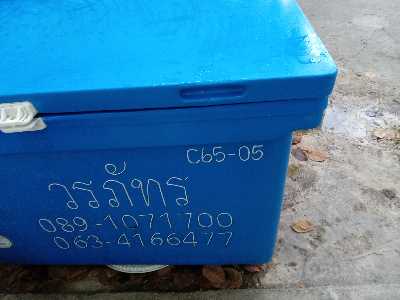 C65-05
วรภัทร
089-1071700
063-4166477